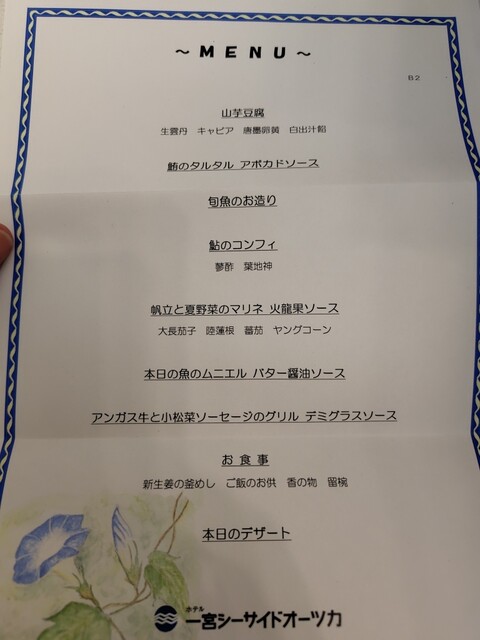 ～MENU～
B2
山芋豆腐
生雲丹　キャビア　唐墨卵黄　白出汁餡
鮪のタルタル アボカドソース
旬魚のお造り
鮎のコンフィ
蓼酢　葉地神
帆立と夏野菜のマリネ 火龍果ソース
大長茄子　陸蓮根　蕃茄　ヤングコーン
本日の魚のムニエル バター醤油ソース
アンガス牛と小松菜ソーセージのグリル デミグラスソース
お 食 事
新生姜の釜めし　ご飯のお供　香の物　留椀
本日のデザート
ホテル
一宮シーサイドオーツカ